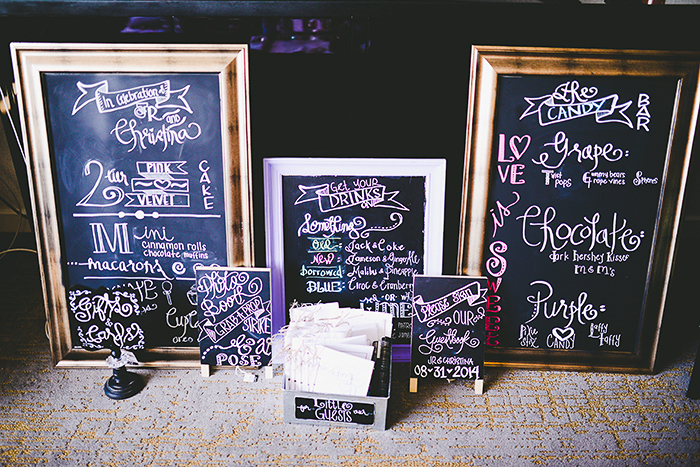 In Celebration of
JR
and
Christina
2 tier
PINK
VELVET
CAKE
Mini
cinnamon rolls
chocolate muffins
macarons
Photo
Booth
GRAB A PROP
STRIKE
a
POSE
Get YOUR
DRINKS
on
Something
Old: Jack & Coke
New: Jameson & Ginger Ale
Borrowed: Malibu & Pineapple
BLUE: Ciroc & Cranberry
OR
Please Sign
OUR
Guestbook
JR & CHRISTINA
08-31-2014
for Little
Guests
the
CANDY
BAR
LOVE
is
SWEET
Grape:
Chocolate:
dark hershey kisses
m & m's
Purple:
Pixie
Stix
CANDY
laffy
taffy